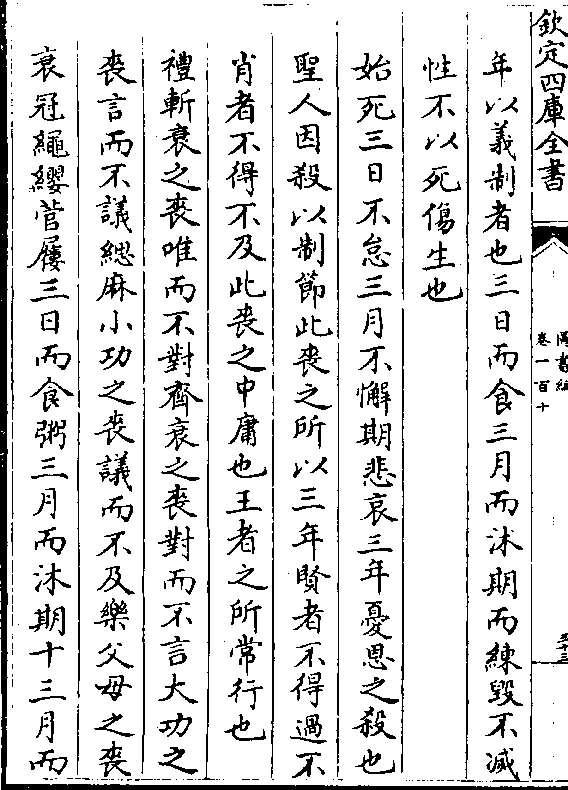 欽定四庫全書
圖書編
卷一百十
年以義制者也三日而食三月而沐期而練毀不滅
性不以死傷生也
始死三日不怠三月不懈期悲哀三年憂恩之殺也
聖人因殺以制節此喪之所以三年賢者不得過不
肖者不得不及此喪之中庸也王者之所常行也
禮斬衰之喪唯而不對齊衰之喪對而不言大功之
喪言而不議緦麻小功之喪議而不及樂父母之喪
衰冠繩纓菅屨三日而食粥三月而沐期十三月而